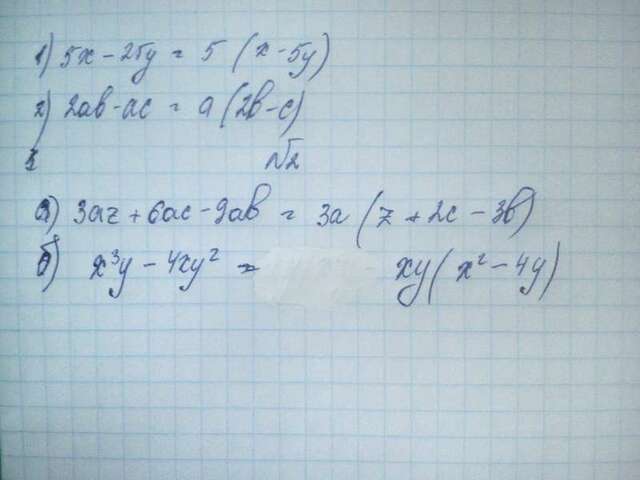 1) 5x - 25y = 5 (x - 5y)
2) 2ab - ac = a (2b - c)
№2
а) 3az + 6ac - 9ab = 3a (z + 2c - 3b)
б) x³y - 4xy² = xy (x² - 4y)